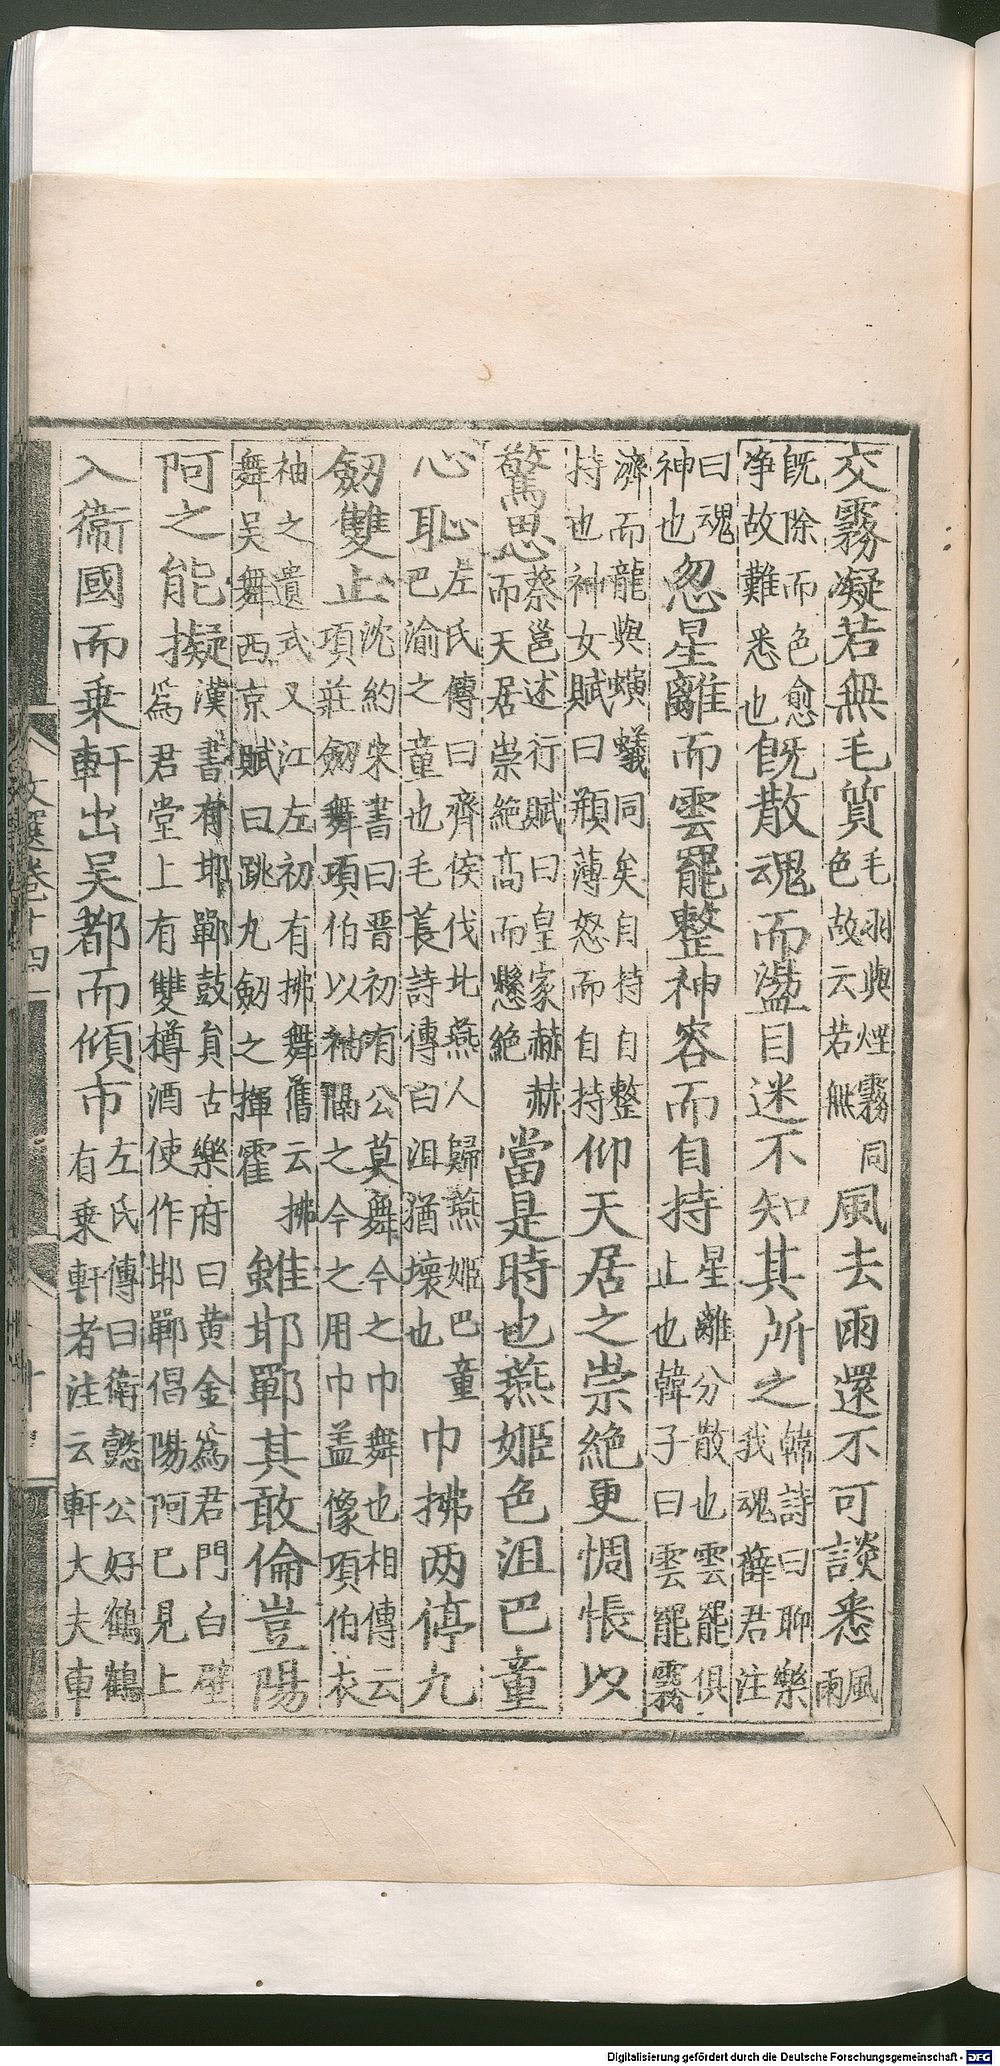 交霧凝若無毛質毛羽與煙霧同色故云若無風去雨還不可談悉風雨
既除而色愈净故難悉也既散魂而盪目迷不知其所之韓詩曰聊樂我魂薛君注
曰魂神也忽星離而雲罷整神容而自持星離分散也雲罷俱止也韓子曰雲罷霧
濟而龍與螾蟻同矣自持自整持也神女賦曰頩薄怒而自持仰天居之崇絶更惆悵以
驚思蔡邕述行賦曰皇家赫赫而天居崇絶高而懸絶當是時也燕姬色沮巴童
心恥左氏傳曰齊侯伐北燕人歸燕姬巴童巴渝之童也毛萇詩傳曰沮猶壞也巾拂两停九
劒雙止沈約宋書曰晋初有公莫舞今之巾舞也相傳云項莊劒舞項伯以袖隔之今之用巾盖像項伯衣
袖之遺式又江左初有拂舞舊云拂舞吴舞西京賦曰跳丸劒之揮霍雖邯鄲其敢倫豈陽
阿之能擬漢書有邯鄲鼓員古樂府曰黄金爲君門白璧爲君堂上有雙樽酒使作邯鄲倡陽阿已見上
入衞國而乗軒出吴都而傾市左氏傳曰衛懿公好鶴鶴有乗軒者注云軒大夫車
文選卷十四
Digitalisierung gefördert durch die Deutsche Forschungsgemeinschaft - DFG